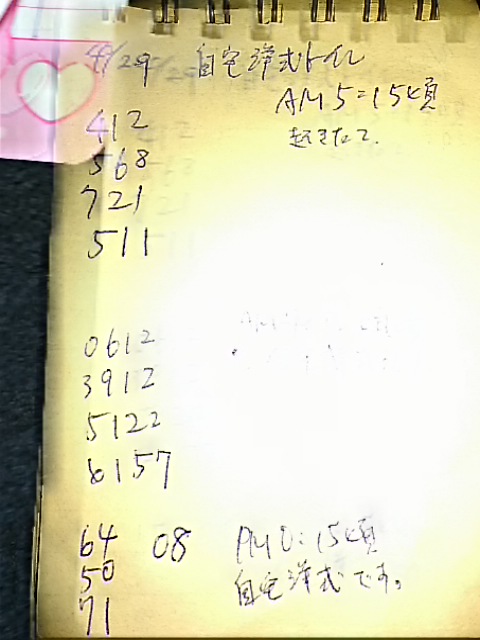 4/29 自宅洋式トイレ
AM5:15頃
起きたて.
412
568
721
511
0612
3912
5122
6157
64 08 PM0:15頃
50 自宅洋式です。
71